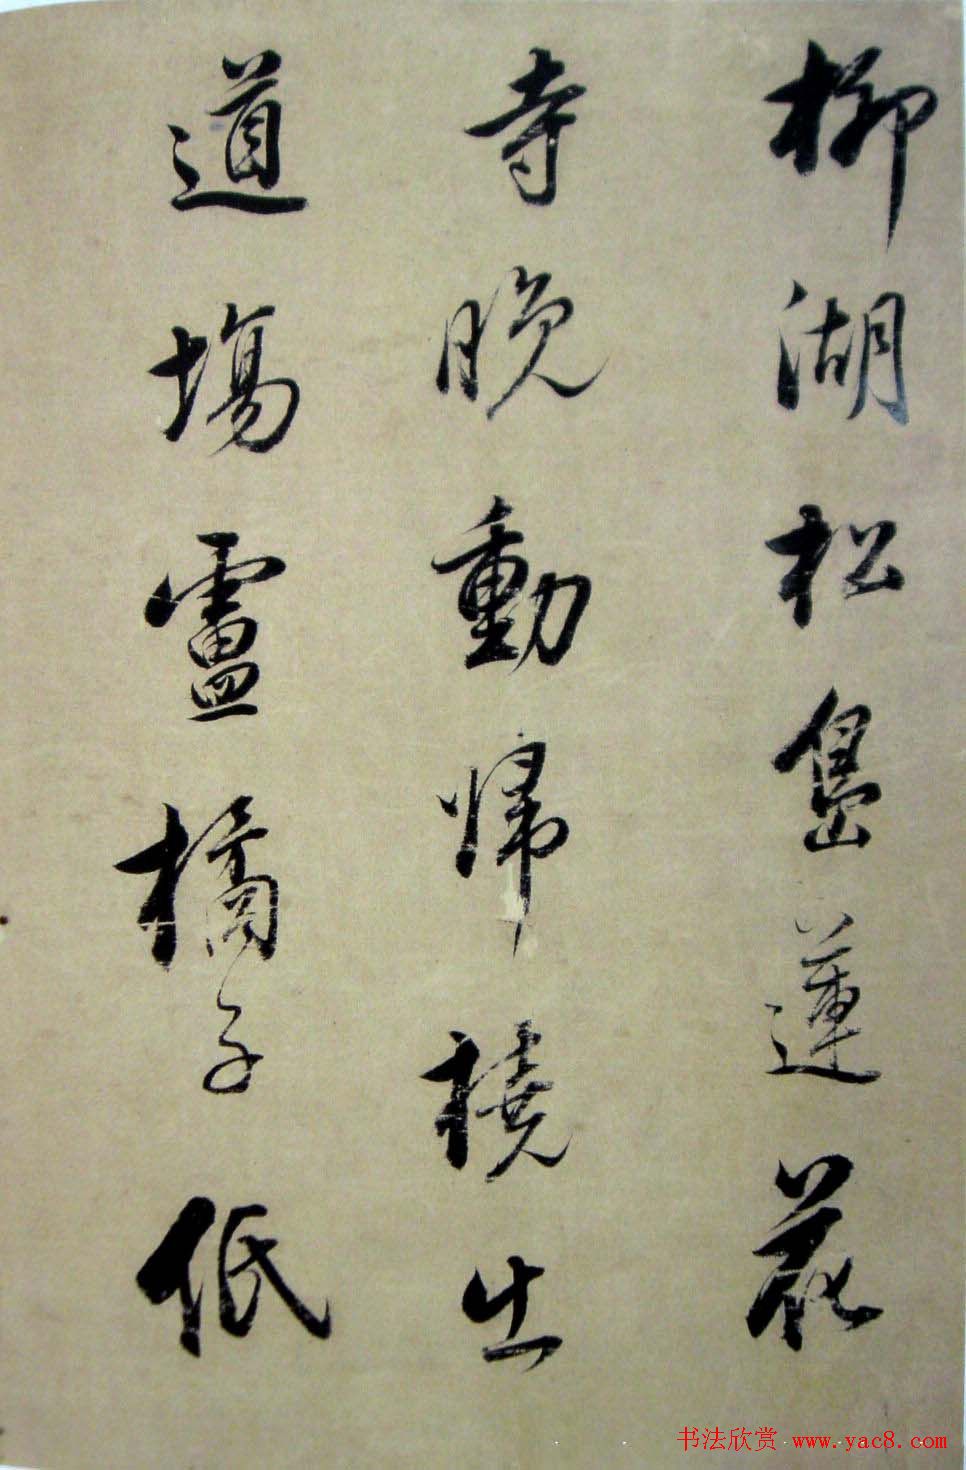 柳湖松島蓮花
寺晚動歸橈出
道場盧橘子低
书法欣赏 www.yac8.com